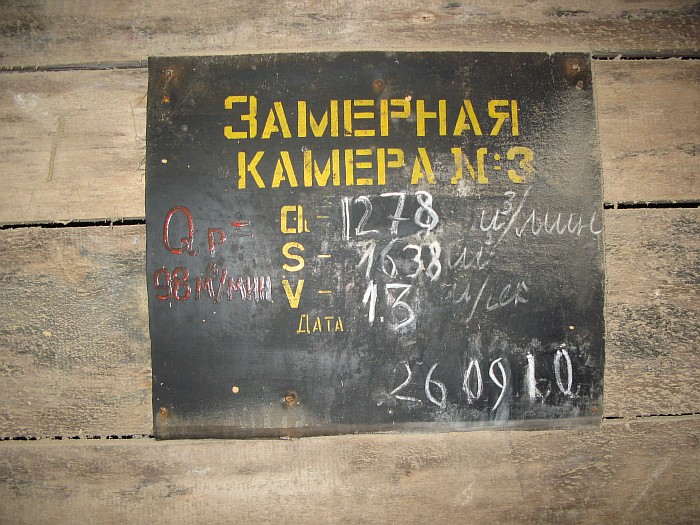 ЗАМЕРНАЯ
КАМЕРА №:3
Q - 1278 м³/мин
S - 16.38 м²
V - 1.3 м/сек
Дата
26 09 10
Qр=
98 м³/мин